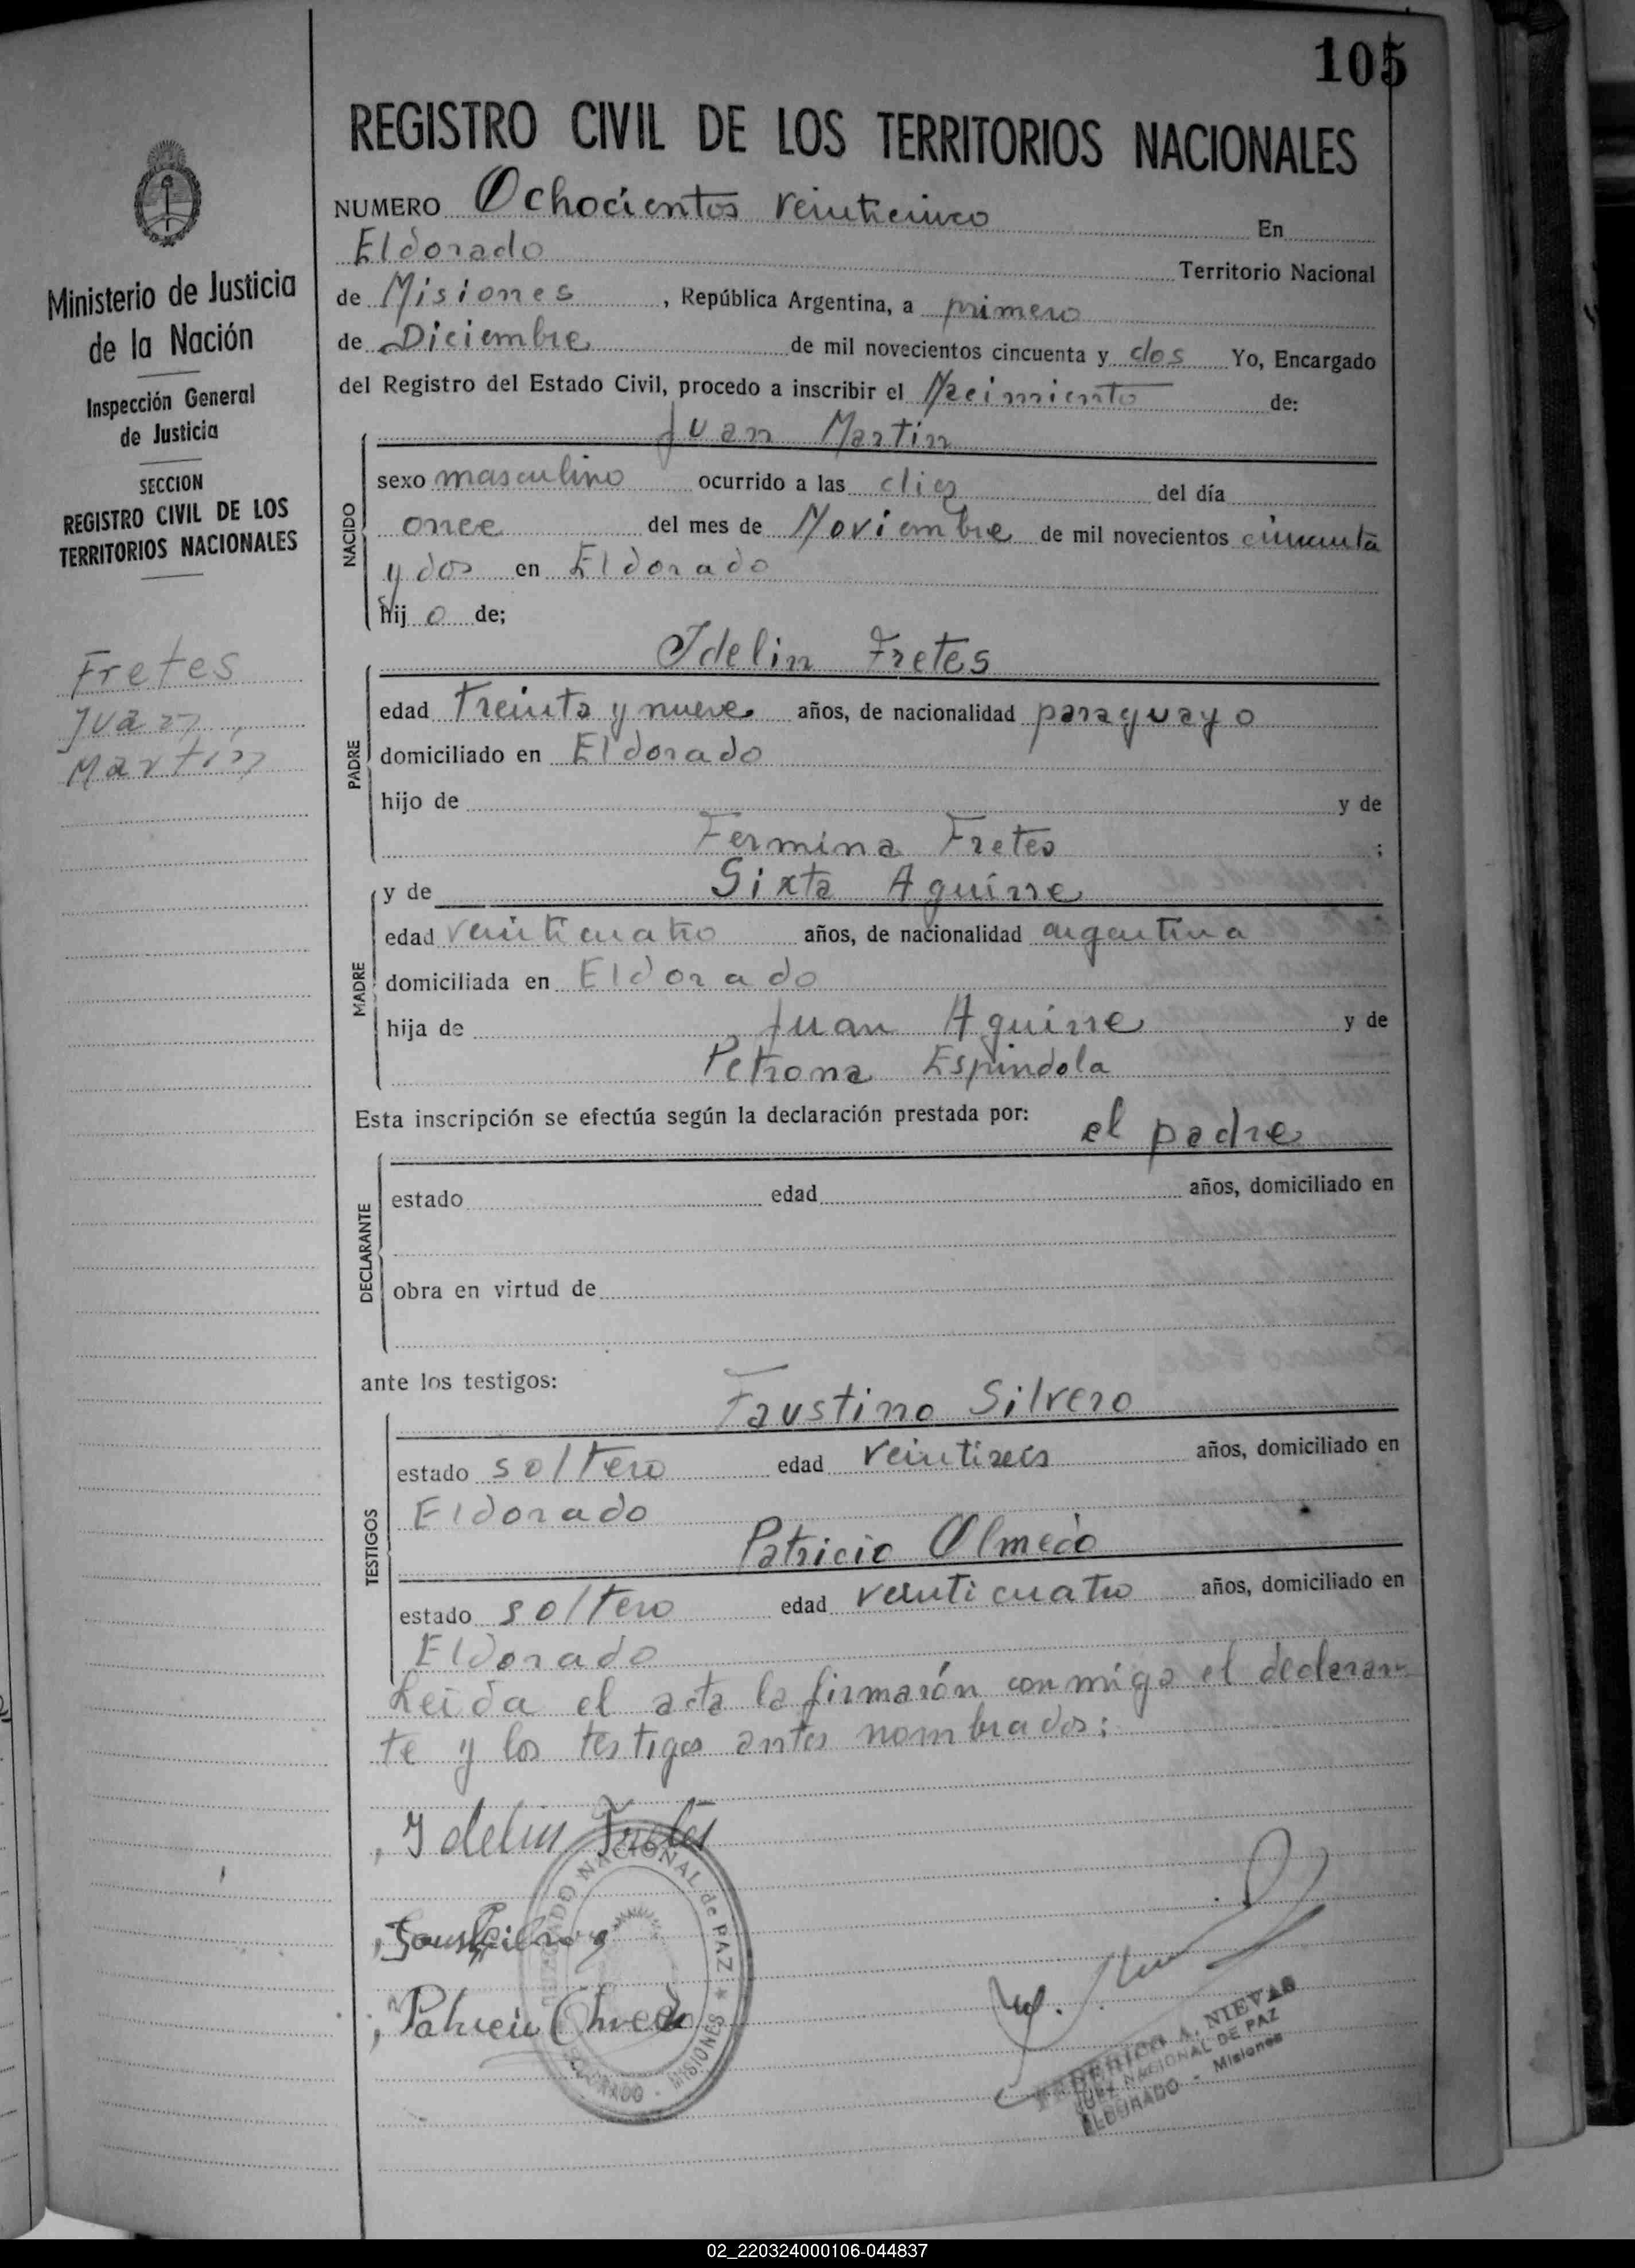 105
REGISTRO CIVIL DE LOS TERRITORIOS NACIONALES
Ministerio de Justicia
de la Nación
Inspección General
de Justicia
SECCION
REGISTRO CIVIL DE LOS
TERRITORIOS NACIONALES
Fretes
Juan
Martin
NUMERO Ochocientos veinticinco En
Eldorado Territorio Nacional
de Misiones, República Argentina, a primero
de Diciembre de mil novecientos cincuenta y dos Yo, Encargado
del Registro del Estado Civil, procedo a inscribir el Nacimiento de:
Juan Martin
NACIDO
sexo masculino ocurrido a las diez del día
once del mes de Noviembre de mil novecientos cincuenta
y dos en Eldorado
hijo de;
Idelin Fretes
PADRE
edad treinta y nueve años, de nacionalidad paraguayo
domiciliado en Eldorado
hijo de y de
Fermina Fretes ;
MADRE
y de Sixta Aguirre
edad veinticuatro años, de nacionalidad argentina
domiciliada en Eldorado
hija de Juan Aguirre y de
Petrona Espindola
Esta inscripción se efectúa según la declaración prestada por: el padre
DECLARANTE
estado edad años, domiciliado en
obra en virtud de
ante los testigos:
Faustino Silvero
TESTIGOS
estado soltero edad veintiseis años, domiciliado en
Eldorado
Patricio Olmedo
estado soltero edad veinticuatro años, domiciliado en
Eldorado
Leida el acta la firmarón conmigo el declaran-
te y los testigos antes nombrados:
Idelin Fretes
JUZGADO NACIONAL de PAZ ★ ELDORADO - MISIONES
Patricio Olmedo
FEDERICO A. NIEVAS
JUEZ NACIONAL DE PAZ
ELDORADO - Misiones
02_220324000106-044837